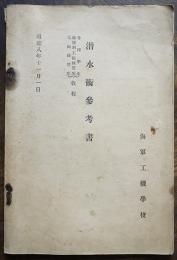 海軍工機學校
潜水術參考書
教程
昭和八年十一月一日